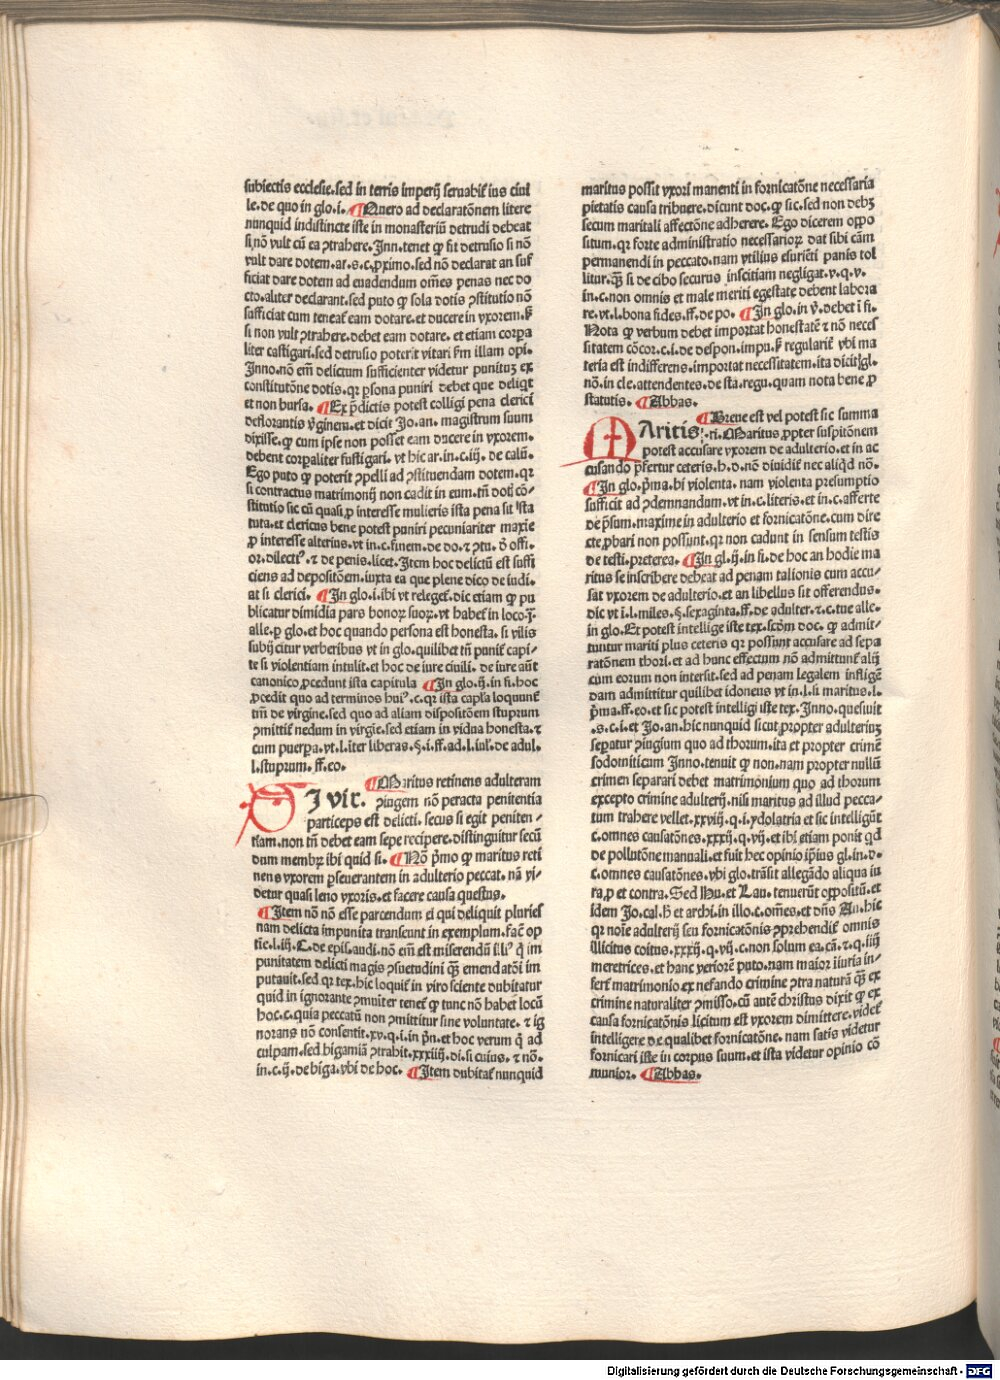 subiectis ecclesie.sed in terris imperij seruabit̄ ius ciui
le.de quo in glo.i. ¶Quero ad declaratōnem litere
nunquid indistincte iste in monasteriū detrudi debeat
si nō vult cū ea ꝯtrahere. Inn.tenet ꝙ sit detrusio si nō
vult dare dotem.ar.s.c.ꝓximo.sed nō declarat an suf
ficiat dare dotem ad euadendum oīnes penas nec do
cto.aliter declarant.sed puto ꝙ sola dotis ꝯstitutio nō
sufficiat cum teneat̄ eam dotare.et ducere in vxorem.ꝶ
si non vult ꝯtrahere.debet eam dotare.et etiam corpa
liter castigari.sed detrusio poterit vitari ẜm illam opi.
Inno.nō em̄ delictum sufficienter videtur punituꝫ ex
constitutōne dotis.qꝛ ꝑsona puniri debet que deliqt
et non bursa. ¶Ex p̄dictis potest colligi pena clerici
deflorantis v̄ginem.et dicit Jo.an. magistrum suum
dixisse.ꝙ cum ipse non posset eam ducere in vxorem.
debent corꝑaliter fustigari. vt hic ar.in.c.iij. de calū.
Ego puto ꝙ poterit ꝯpelli ad ꝯstituendam dotem.qꝛ
si contractus matrimonij non cadit in eum.tn̄ doti cō⸗
stitutio sic cū quasi ꝓ interesse mulieris ista pena sit ista
tuta.et clericus bene potest puniri pecuniariter maxie
ꝓ interesse alterius.vt in.c.finem.de do.ꝛ ꝯtu. ⁊ offi.
or.dilectꝰ.⁊ de penis.licet.Item hoc delictū est suffi
ciens ad depositōem.iuxta ea que plene dico de iudi.
at si clerici. ¶In glo.i.ibi vt releget̄.dic etiam ꝙ pu
blicatur dimidia pars bonoꝝ suoꝝ.vt habet̄ in loco.ꝗ̄.
alle.ꝑ glo.et hoc quando persona est honesta. si vilis
subijcitur verberibus vt in glo.quilibet tn̄ punit̄ capi⸗
te si violentiam intulit.et hoc de iure ciuili. de iure aūt
canonico ꝓcedunt ista capitula ¶In glo.ij.in fi.hoc
ꝓcedit quo ad terminos huiꝰ.c.qꝛ ista capl'a loquunt̄
tm̄ de virgine.sed quo ad aliam dispositōem stuprum
ꝯmittit̄ nedum in virgīe.sed etiam in vidua honesta.⁊
cum puerpa.vt.l.iter liberas.§.i.ff.ad.l.iul'.de adul.
l.stuprum.ff.eo.
¶Maritus retinens adulteram
SI vir. ꝯiugem nō peracta penitentia
particeps est delicti. secus si egit peniten⸗
tiam.non tn̄ debet eam sepe recipere.distinguitur secū
dum membꝝ ibi quid si. ¶Nō p̄mo ꝙ maritus reti
nens vxorem ꝑseuerantem in adulterio peccat. nā vi⸗
detur quasi leno vxoris.et facere causa questus.
¶Item nō nō esse parcendum ei qui deliquit pluries
nam delicta impunita transeunt in exemplum.fac̄ op
tīe.l.iij.C.de epis.audi.nō em̄ est miserendū illiꝰ q̄ im
punitatem delicti magis ꝯsuetudini q̄ꝫ emendatōi im
putauit.sed qꝛ tex.hic loquit̄ in viro sciente dubitatur
quid in ignorante ꝯmuiter tenet̄ ꝙ tunc nō habet locū
hoc.c.quia peccatū non ꝯmittitur sine voluntate. ⁊ ig
norans nō consentit.xv.q.i.in p̄n.et hoc verum q̄ ad
culpam.sed bigamiā ꝯtrahit.xxxiiij.di.si cuius. ⁊ nō.
in.c.ij.de biga.vbi de hoc. ¶Item dubitat̄ nunquid
maritus possit vxori manenti in fornicatōne necessaria
pietatis causa tribuere.dicunt doc. ꝙ sic.sed non debꝫ
secum maritali affectōne adherere. Ego dicerem oppo
situm.qꝛ forte administratio necessarioꝝ dat sibi cām
permanendi in peccato.nam vtilius esuriēti panis tol
litur.q̄ꝫ si de cibo securus inscitiam negligat.v.q.v.
in.c.non omnis et male meriti egestate debent labora
re.vt.l.bona fides.ff.de po. ¶In glo.in v̄.debet ī fi.
Nota ꝙ verbum debet importat honestatē ⁊ nō neces
sitatem cōcor.c.i.de despon.impu.ꝶ regularit̄ vbi ma
teria est indifferens.importat necessitatem.ita dicit gl.
nō.in cle.attendentes.de sta.regu.quam nota bene ꝓ
statutis. ¶Abbas.
¶Breue est vel potest sic summa
MAritis. ri. Maritus ꝓpter suspitōnem
potest accusare vxorem de adulterio.et in ac
cusando p̄fertur ceteris.h.d.nō diuidit̄ nec aliqd nō.
¶In glo.p̄ma.bi violenta. nam violenta presumptio
sufficit ad ꝯdemnandum.vt in.c.literis.et in.c.afferte
de p̄sum.maxime in adulterio et fornicatōne.cum dire
cte ꝓbari non possunt.qꝛ non cadunt in sensum testis
de testi.preterea. ¶In gl.ij.in fi.de hoc an hodie ma
ritus se inscribere debeat ad penam talionis cum accu⸗
sat vxorem de adulterio.et an libellus sit offerendus.
dic vt i.l.miles.§.sexaginta.ff.de adulter.⁊.c.tue alle.
in glo.Et potest intellige iste tex.scd̄m doc. ꝙ admit⸗
tuntur mariti plus ceteris qꝛ possunt accusare ad sepa
ratōnem thori.et ad hunc effectum nō admittunt̄ alij
cum eorum non intersit.sed ad penam legalem infligē
dam admittitur quilibet idoneus vt in.l.si maritus.l.
p̄ma.ff.eo.et sic potest intelligi iste tex. Inno.quesiuit
.s.c.i.et Jo.an.hic nunquid sicut propter adulteriuꝫ
sepatur ꝯiugium quo ad thorum.ita et propter crimē
sodomiticum Inno.tenuit ꝙ non.nam propter nullū
crimen separari debet matrimonium quo ad thorum
excepto crimine adulterij.nisi maritus ad illud pecca⸗
tum trahere vellet.xxviij.q.i.ydolatria et sic intelligūt
c.omnes causatōnes.xxxij.q.vij.et ibi etiam ponit qd
de pollutōne manuali.et fuit hec opinio ip̄ius gl.in.d.
c.omnes causatōnes.vbi glo.trāsit allegādo aliqua iu
ra ꝓ et contra. Sed Hu.et Lau.tenuerūt oppositū.et
idem Jo.cal.h̄ et archi.in illo.c.om̄es.et dn̄s An.hic
qꝛ noīe adulterij seu fornicatōnis ꝯprehendit̄ omnis
illicitus coitus.xxxij.q.vij.c.non solum ea.cā.⁊.q.iiij
meretrices.et hanc veriorē puto.nam maior iiuria in⸗
fert̄ matrimonio ex nefando crimine ꝯtra naturā q̄ꝫ ex
crimine naturaliter ꝯmisso.cū autē christus dixit ꝙ ex
causa fornicatōnis licitum est vxorem dimittere.videt̄
intelligere de qualibet fornicatōne. nam satis videtur
fornicari iste in corpus suum.et ista videtur opinio cō
munior. ¶Abbas.
Digitalisierung gefördert durch die Deutsche Forschungsgemeinschaft - DFG